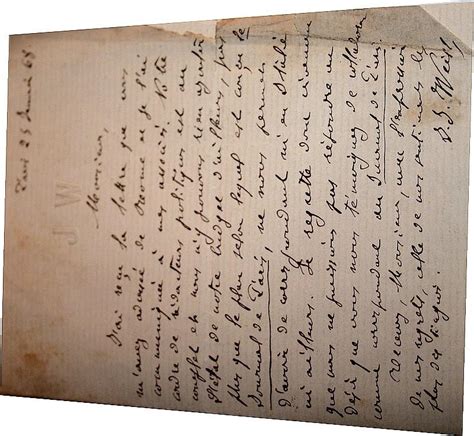 Paris 25 Janvier 68
J W
Monsieur,
J'ai reçu la lettre que vous
m'avez adressé de Rome et je l'ai
communiquée à mes associés. Notre
cadre de rédacteurs politiques est au
complet et nous n'y pouvons rien ajouter
L'état de notre budget d'ailleurs, pas
plus que le plan selon lequel est conçu le
Journal de Paris, ne nous permet
d'avoir de correspondant ni en Italie
ni ailleurs. Je regrette donc vivement
que nous ne puissions pas répondre au
désir que vous nous témoignez de collaborer
comme correspondant au Journal de Paris.
Recevez, Monsieur, avec l'expression
de mes regrets, celle de mes sentiments les
plus distingués.
J. J. Weiss